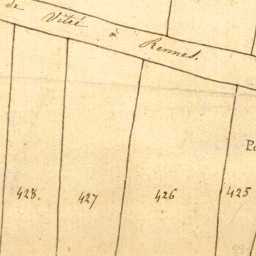 de Vitré à Rennes.
428. 427 426 425